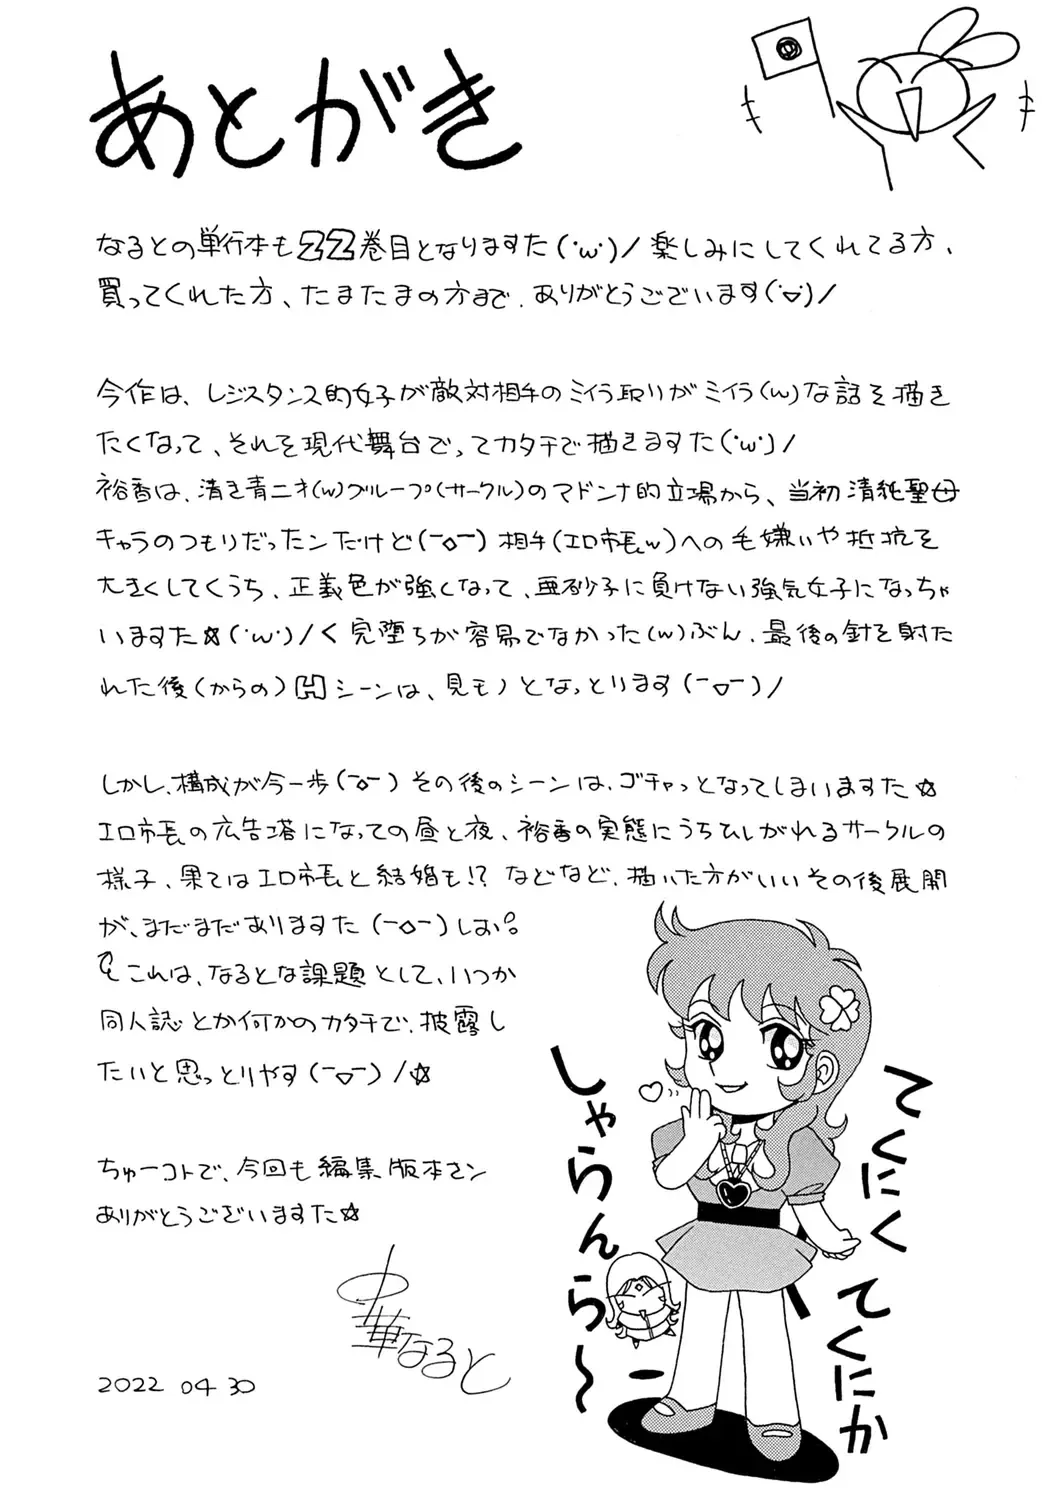 あとがき
なるとの単行本も22巻目となりますた(・ω・)/楽しみにしてくれてる方、
買ってくれた方、たまたまの方まで、ありがとうございます(・▽・)/
今作は、レジスタンス的女子が敵対相手のミイラ取りがミイラ(w)な話を描き
たくなって、それを現代舞台でってカタチで描きますた(・ω・)/
裕香は、清き青二才(w)グループ(サークル)のマドンナ的立場から、当初清純聖母
キャラのつもりだったンだけど(-o-)相手(エロ市長w)への毛嫌いや抵抗を
大きくしてくうち、正義色が強くなって、亜砂子に負けない強気女子になっちゃ
いますた☆(・ω・)/く完堕ちが容易でなかった(w)ぶん、最後の針を射た
れた後(からの)Hシーンは、見モノとなっとります(-▽-)/
しかし、構成が今一歩(-o-)その後のシーンは、ゴチャっとなってしまいますた☆
エロ市長の広告塔になっての昼と夜、裕香の実態にうちひしがれるサークルの
様子、果てはエロ市長と結婚も!?などなど、描いた方がいいその後展開
が、まだまだありますた(-o-)しお。
これは、なるとな課題として、いつか
同人誌とか何かのカタチで、披露し
たいと思っとりやす(-▽-)/☆
ちゅーコトで、今回も編集版本サン
ありがとうございますた☆
中華なると
2022 04 30
しゃらんら〜
てくにく
てくにか